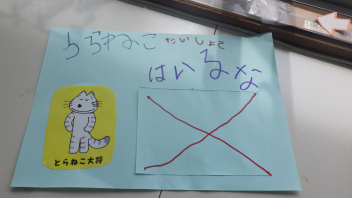 とらねこ たいしょう
はいるな
とらねこ大将